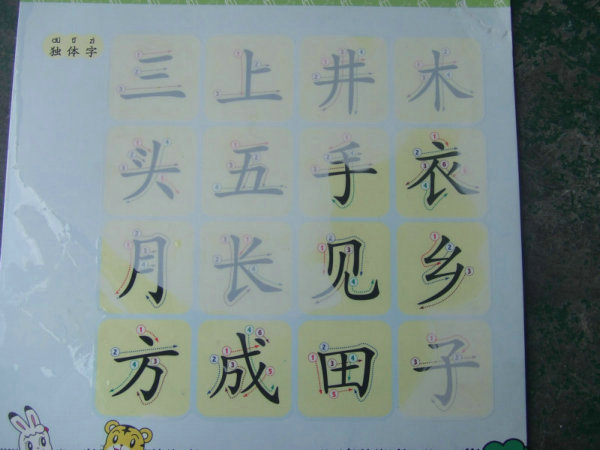 独体字
三上井木
头五手衣
月长见乡
方成田子